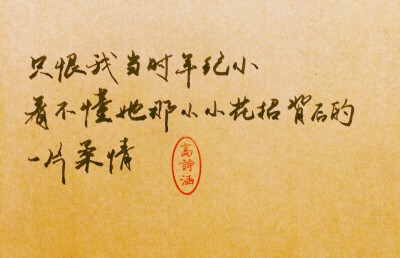 只恨我当时年纪小
看不懂她那小小花招背后的
一片柔情
高诗涵